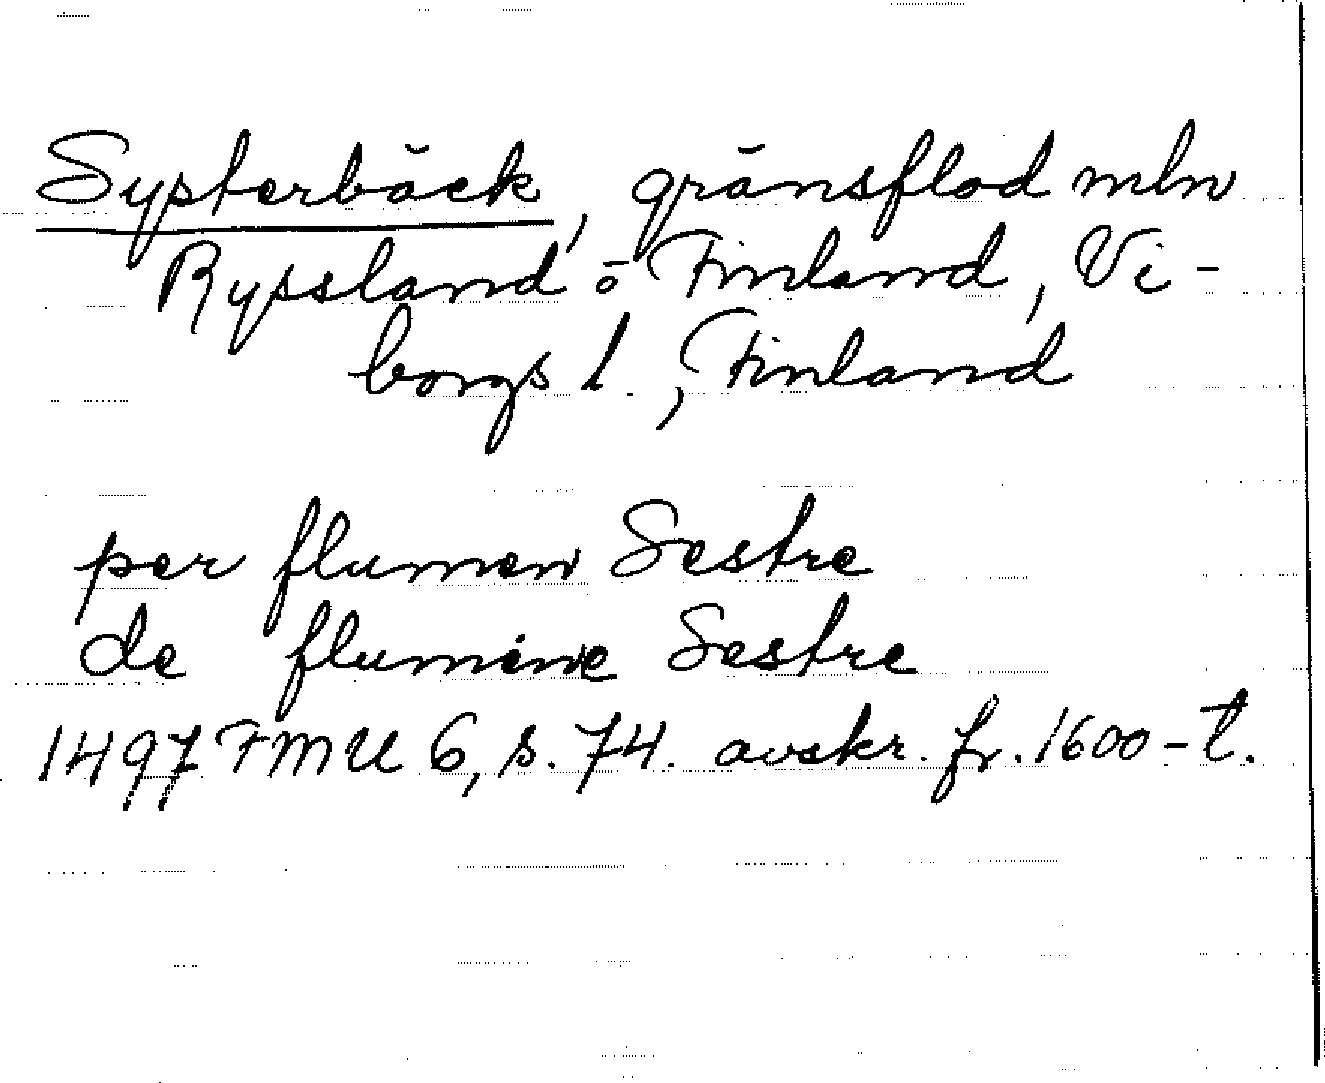 Systerbäck, gränsflod mln
Ryssland o Finland, Vi-
borgs l., Finland
per flumen Sestre
de flumine Sestre
1497 FMU 6, s. 74. avskr. fr. 1600-t.